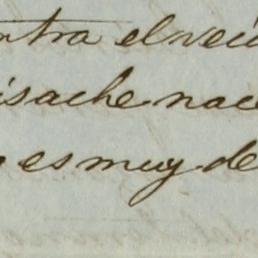 ntra el veci
isache nace
es muy de